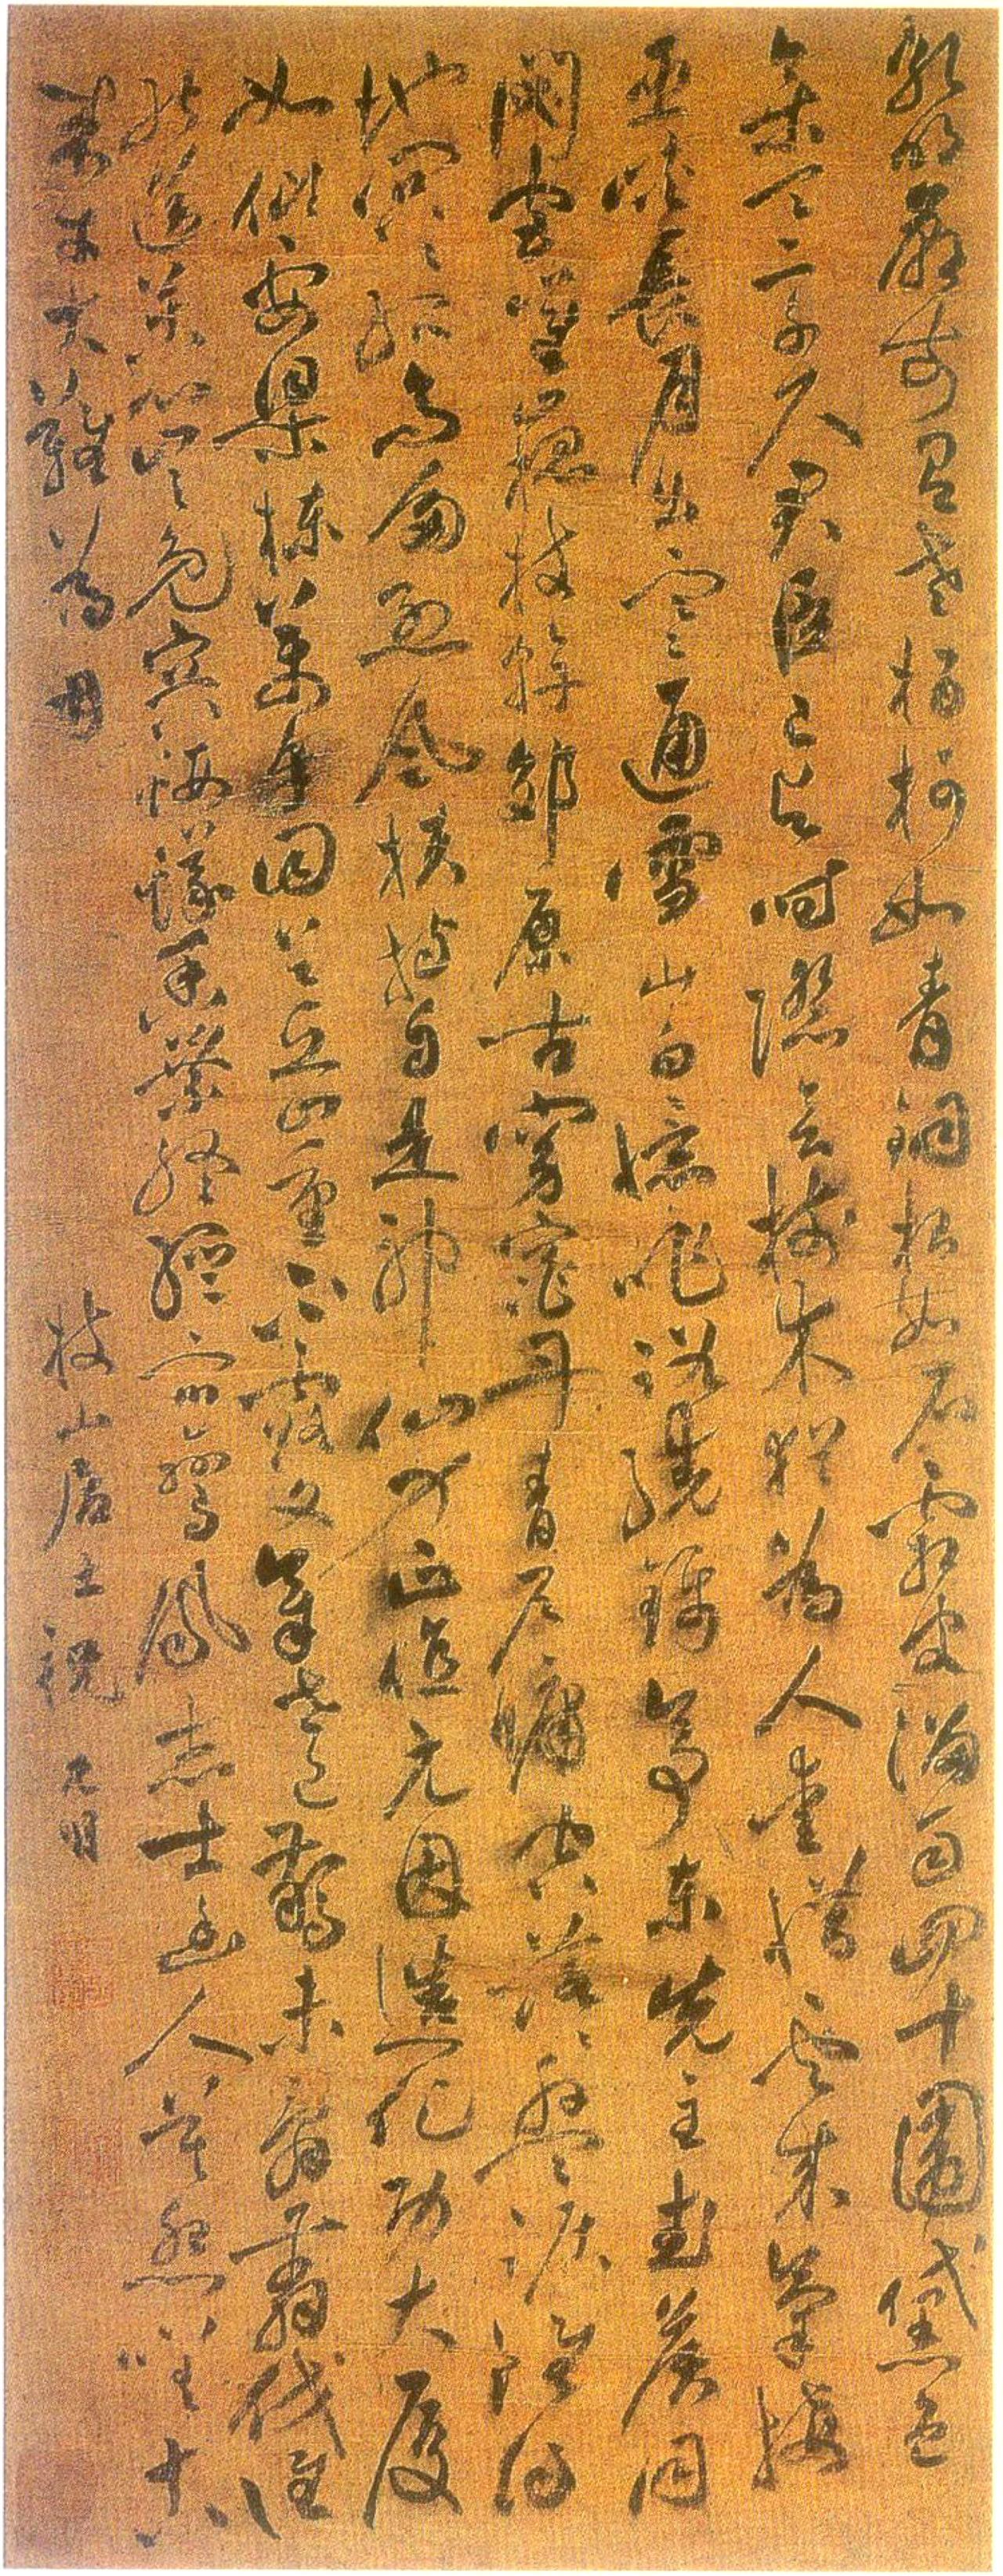 孔明廟前有老柏柯如青銅根如石霜皮溜雨四十圍黛色
參天二千尺君臣已與時際會樹木猶為人愛惜雲來氣接
巫峽長月出寒通雪山白憶昨路繞錦亭東先主武侯同
閟宮崔嵬枝幹郊原古窈窕丹青戶牖空落落盤踞雖得
地冥冥孤高多烈風扶持自是神明力正直元因造化功大廈
如傾要梁棟萬牛回首丘山重不露文章世已驚未辭翦伐誰
能送苦心豈免容螻蟻香葉終經宿鸞鳳志士幽人莫怨嗟古
來材大難為用
枝山居士祝允明